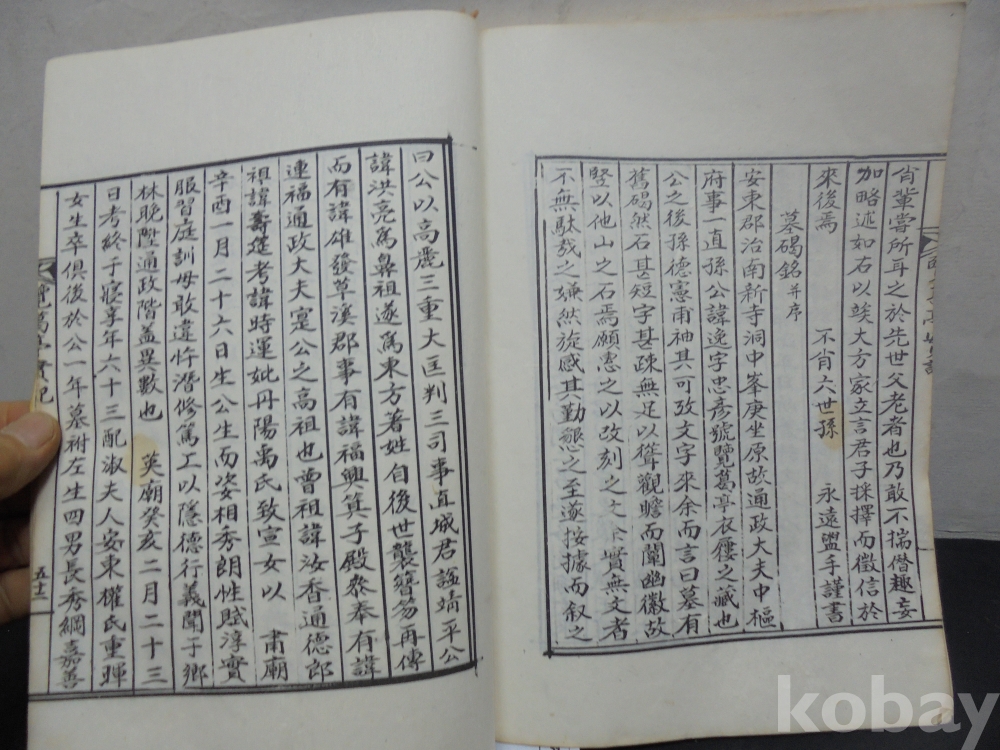 肖輩嘗所耳之於先世父老者也乃敢不揣僭趣妄
加略述如右以竢大方家立言君子採擇而徵信於
來後焉
不肖六世孫 永遠盥手謹書
墓碣銘 并序
安東郡治南新寺洞中峯庚坐原故通政大夫中樞
府事一直孫公諱逸字忠彦號覽葛亭衣屨之藏也
公之後孫德憲甫袖其可攷文字來余而言曰墓有
舊碣然石甚短字甚疎無足以聳觀瞻而闡幽徽故
竪以他山之石焉願惠之以改刻之文余實無文者
不無馱㦲之嫌然旋感其勤懇之至遂按據而叙之
曰公以高麗三重大匡判三司事直城君諡靖平公
諱洪亮爲鼻祖遂爲東方著姓自後世襲簪笏再傳
而有諱雄發草溪郡事有諱福興箕子殿叅奉有諱
連福通政大夫寔公之高祖也曾祖諱汝香通德郎
祖諱壽筵考諱時運妣丹陽禹氏致宣女以 肅廟
辛酉一月二十六日生公生而姿相秀朗性賦淳實
服習庭訓毋敢違忤潛修篤工以隱德行義聞于鄕
林晩陞通政階盖異數也 英廟癸亥二月二十三
日考終于寢享年六十三配淑夫人安東權氏重暉
女生卒俱後於公一年墓祔左生四男長秀綱嘉善
覽葛亭實記
五十二